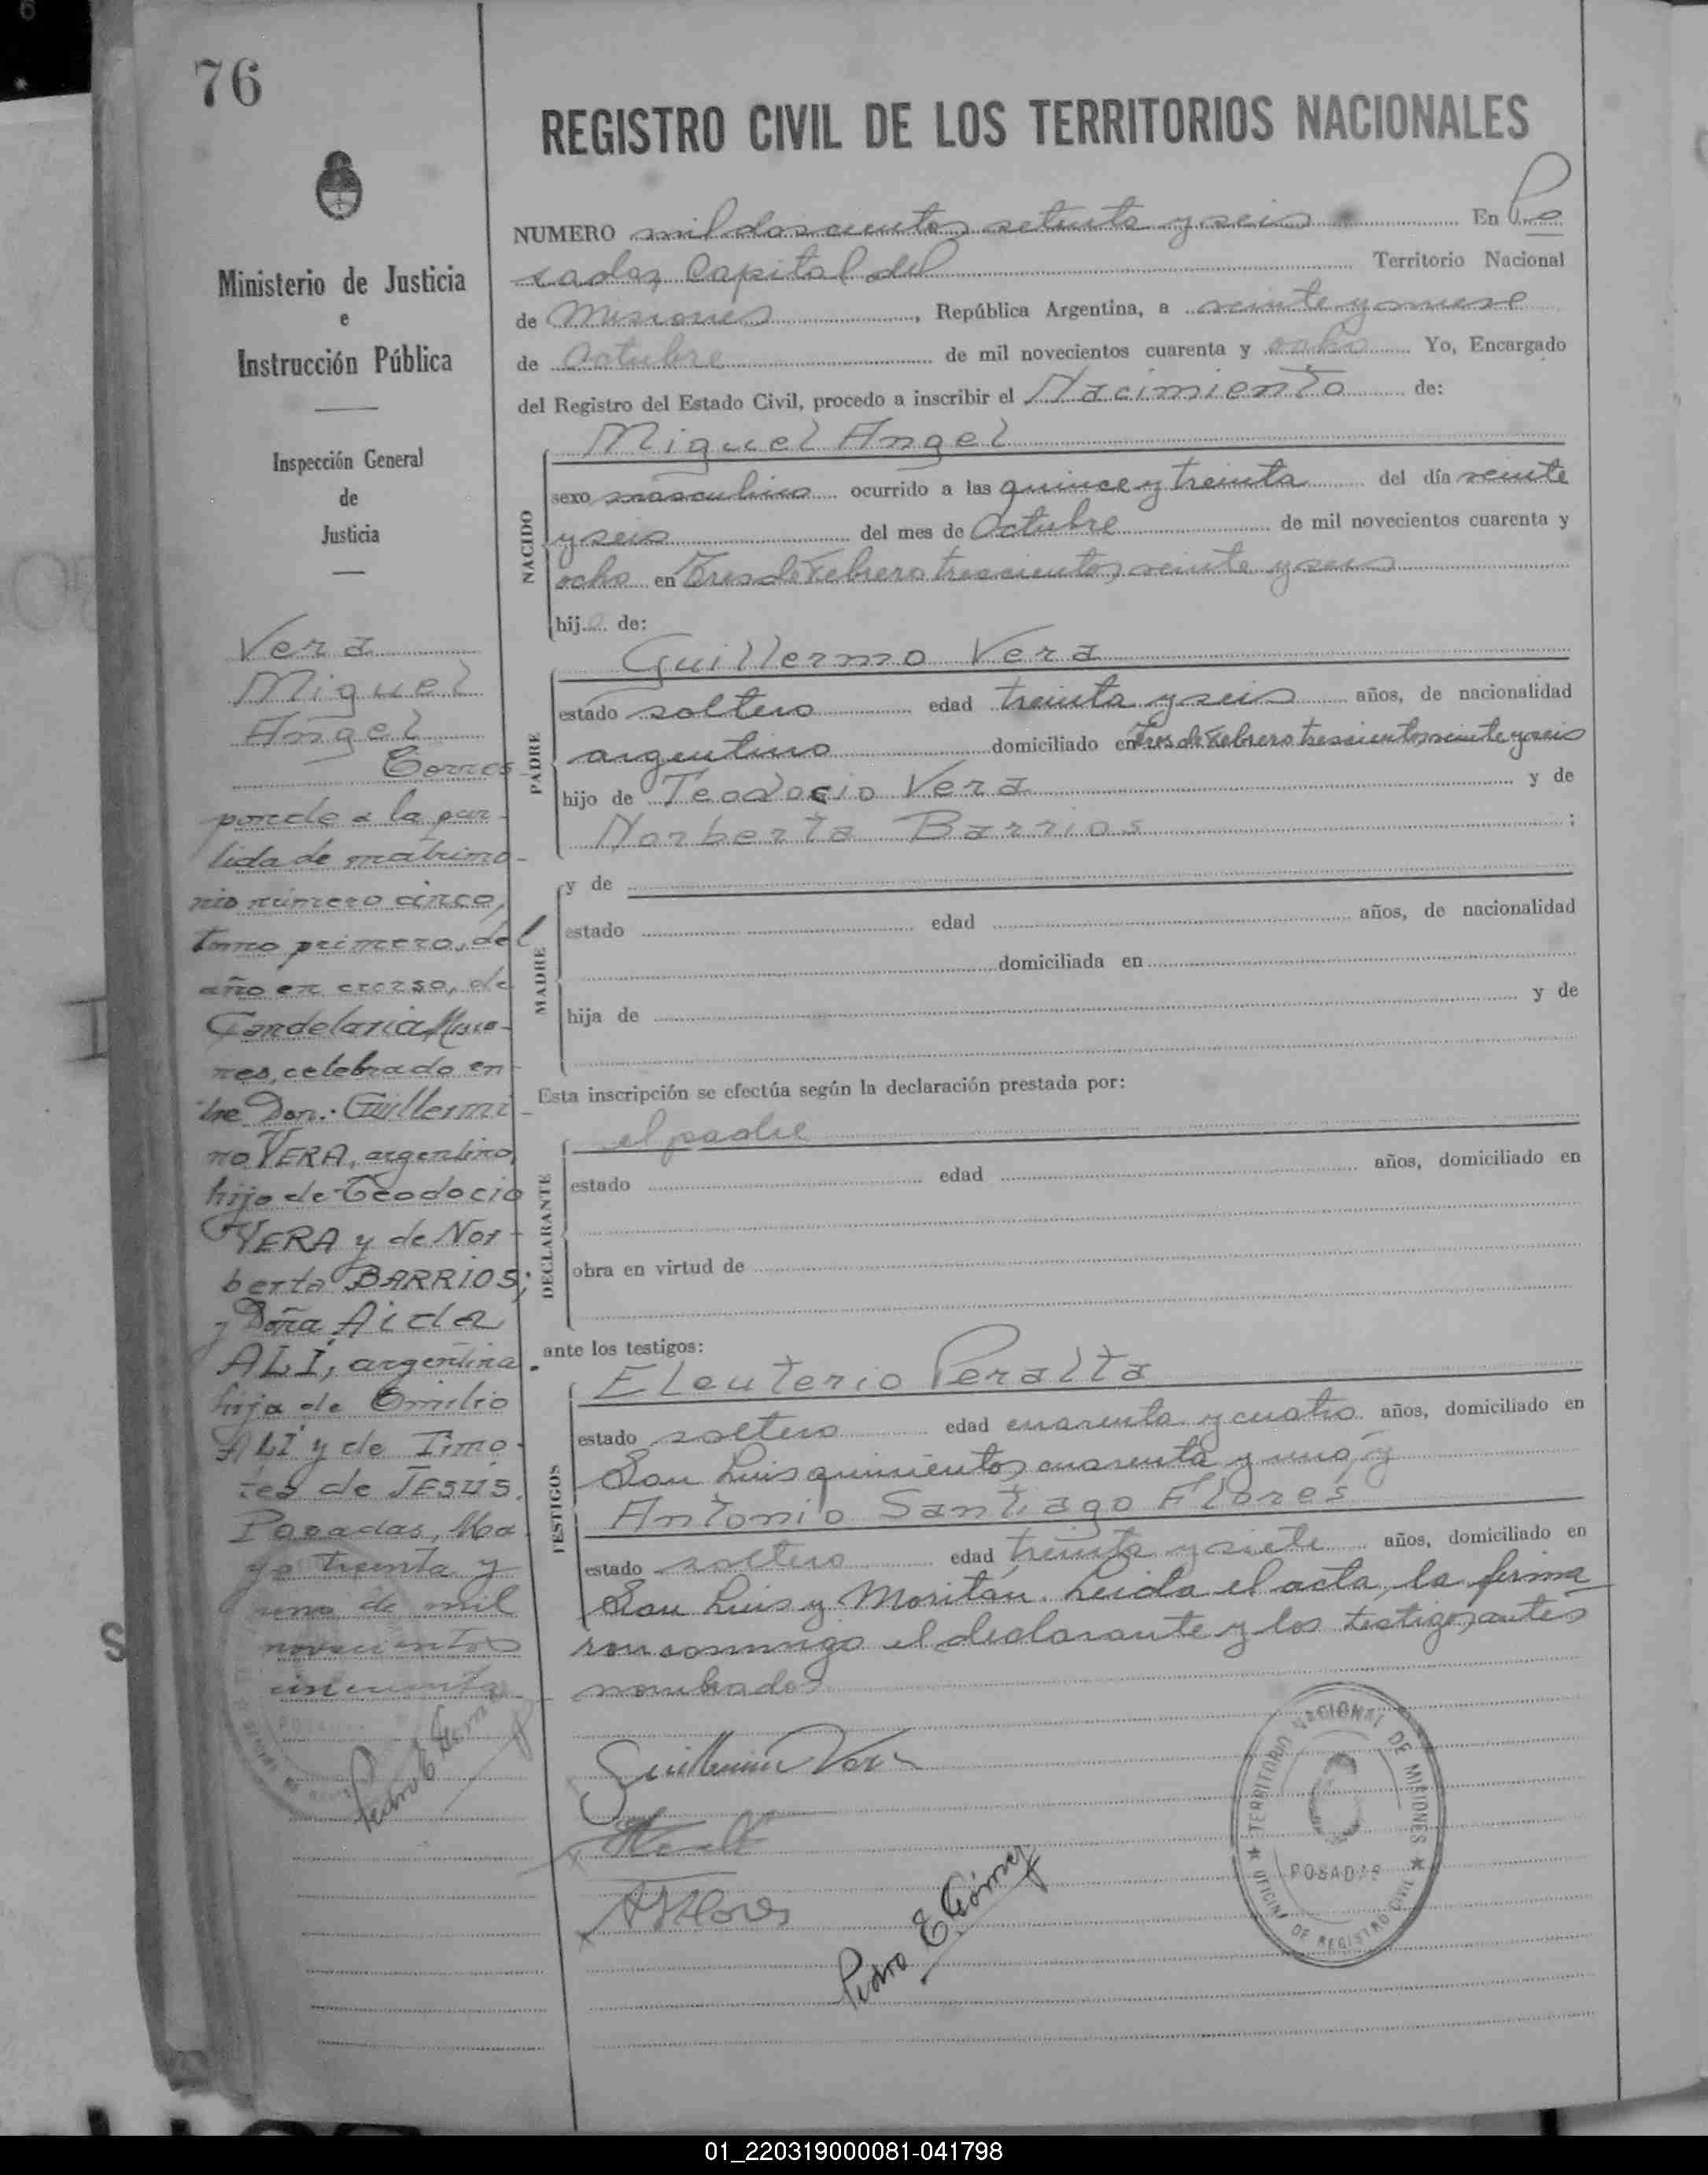 76
Ministerio de Justicia
e
Instrucción Pública
Inspección General
de
Justicia
Vera
Miguel
Angel
Corres
ponde a la par-
tida de matrimo-
nio número cinco,
tomo primero, del
año en curso, de
Candelaria, Misio-
nes, celebrado en-
tre Don: Guillermi-
no VERA, argentino,
hijo de Teodocio
VERA y de Nor-
berta BARRIOS;
y Doña Aida
ALÍ, argentina.
hija de Emilio
ALÍ y de Timo-
tea de JESÚS.
Posadas, Ma-
yo treinta y
uno de mil
novecientos
cincuenta
Pedro E. Gómez
REGISTRO CIVIL DE LOS TERRITORIOS NACIONALES
NUMERO mil doscientos setenta y seis En Po
sadas, Capital del Territorio Nacional
de Misiones, República Argentina, a veinte y nueve
de Octubre de mil novecientos cuarenta y ocho Yo, Encargado
del Registro del Estado Civil, procedo a inscribir el Nacimiento de:
Miguel Angel
NACIDO
sexo masculino ocurrido a las quince y treinta del día veinte
y seis del mes de Octubre de mil novecientos cuarenta y
ocho en Tres de Febrero trescientos veinte y seis
hijo de:
Guillermo Vera
PADRE
estado soltero edad treinta y seis años, de nacionalidad
argentino domiciliado en Tres de Febrero trescientos veinte y seis
hijo de Teodocio Vera y de
Norberta Barrios ;
y de
MADRE
estado edad años, de nacionalidad
domiciliada en
hija de y de
Esta inscripción se efectúa según la declaración prestada por:
el padre
DECLARANTE
estado edad años, domiciliado en
obra en virtud de
ante los testigos:
Eleuterio Peralta
TESTIGOS
estado soltero edad cuarenta y cuatro años, domiciliado en
San Luis quinientos cuarenta y uno, y
Antonio Santiago Flores
estado soltero edad treinta y siete años, domiciliado en
San Luis y Moritán. Leida el acta, la firma
ron conmigo el declarante y los testigos antes
nombrados
Guillermino Vera
A S Flores
Pedro E. Gómez
TERRITORIO NACIONAL DE MISIONES
POSADAS
OFICINA DE REGISTRO CIVIL
01_220319000081-041798